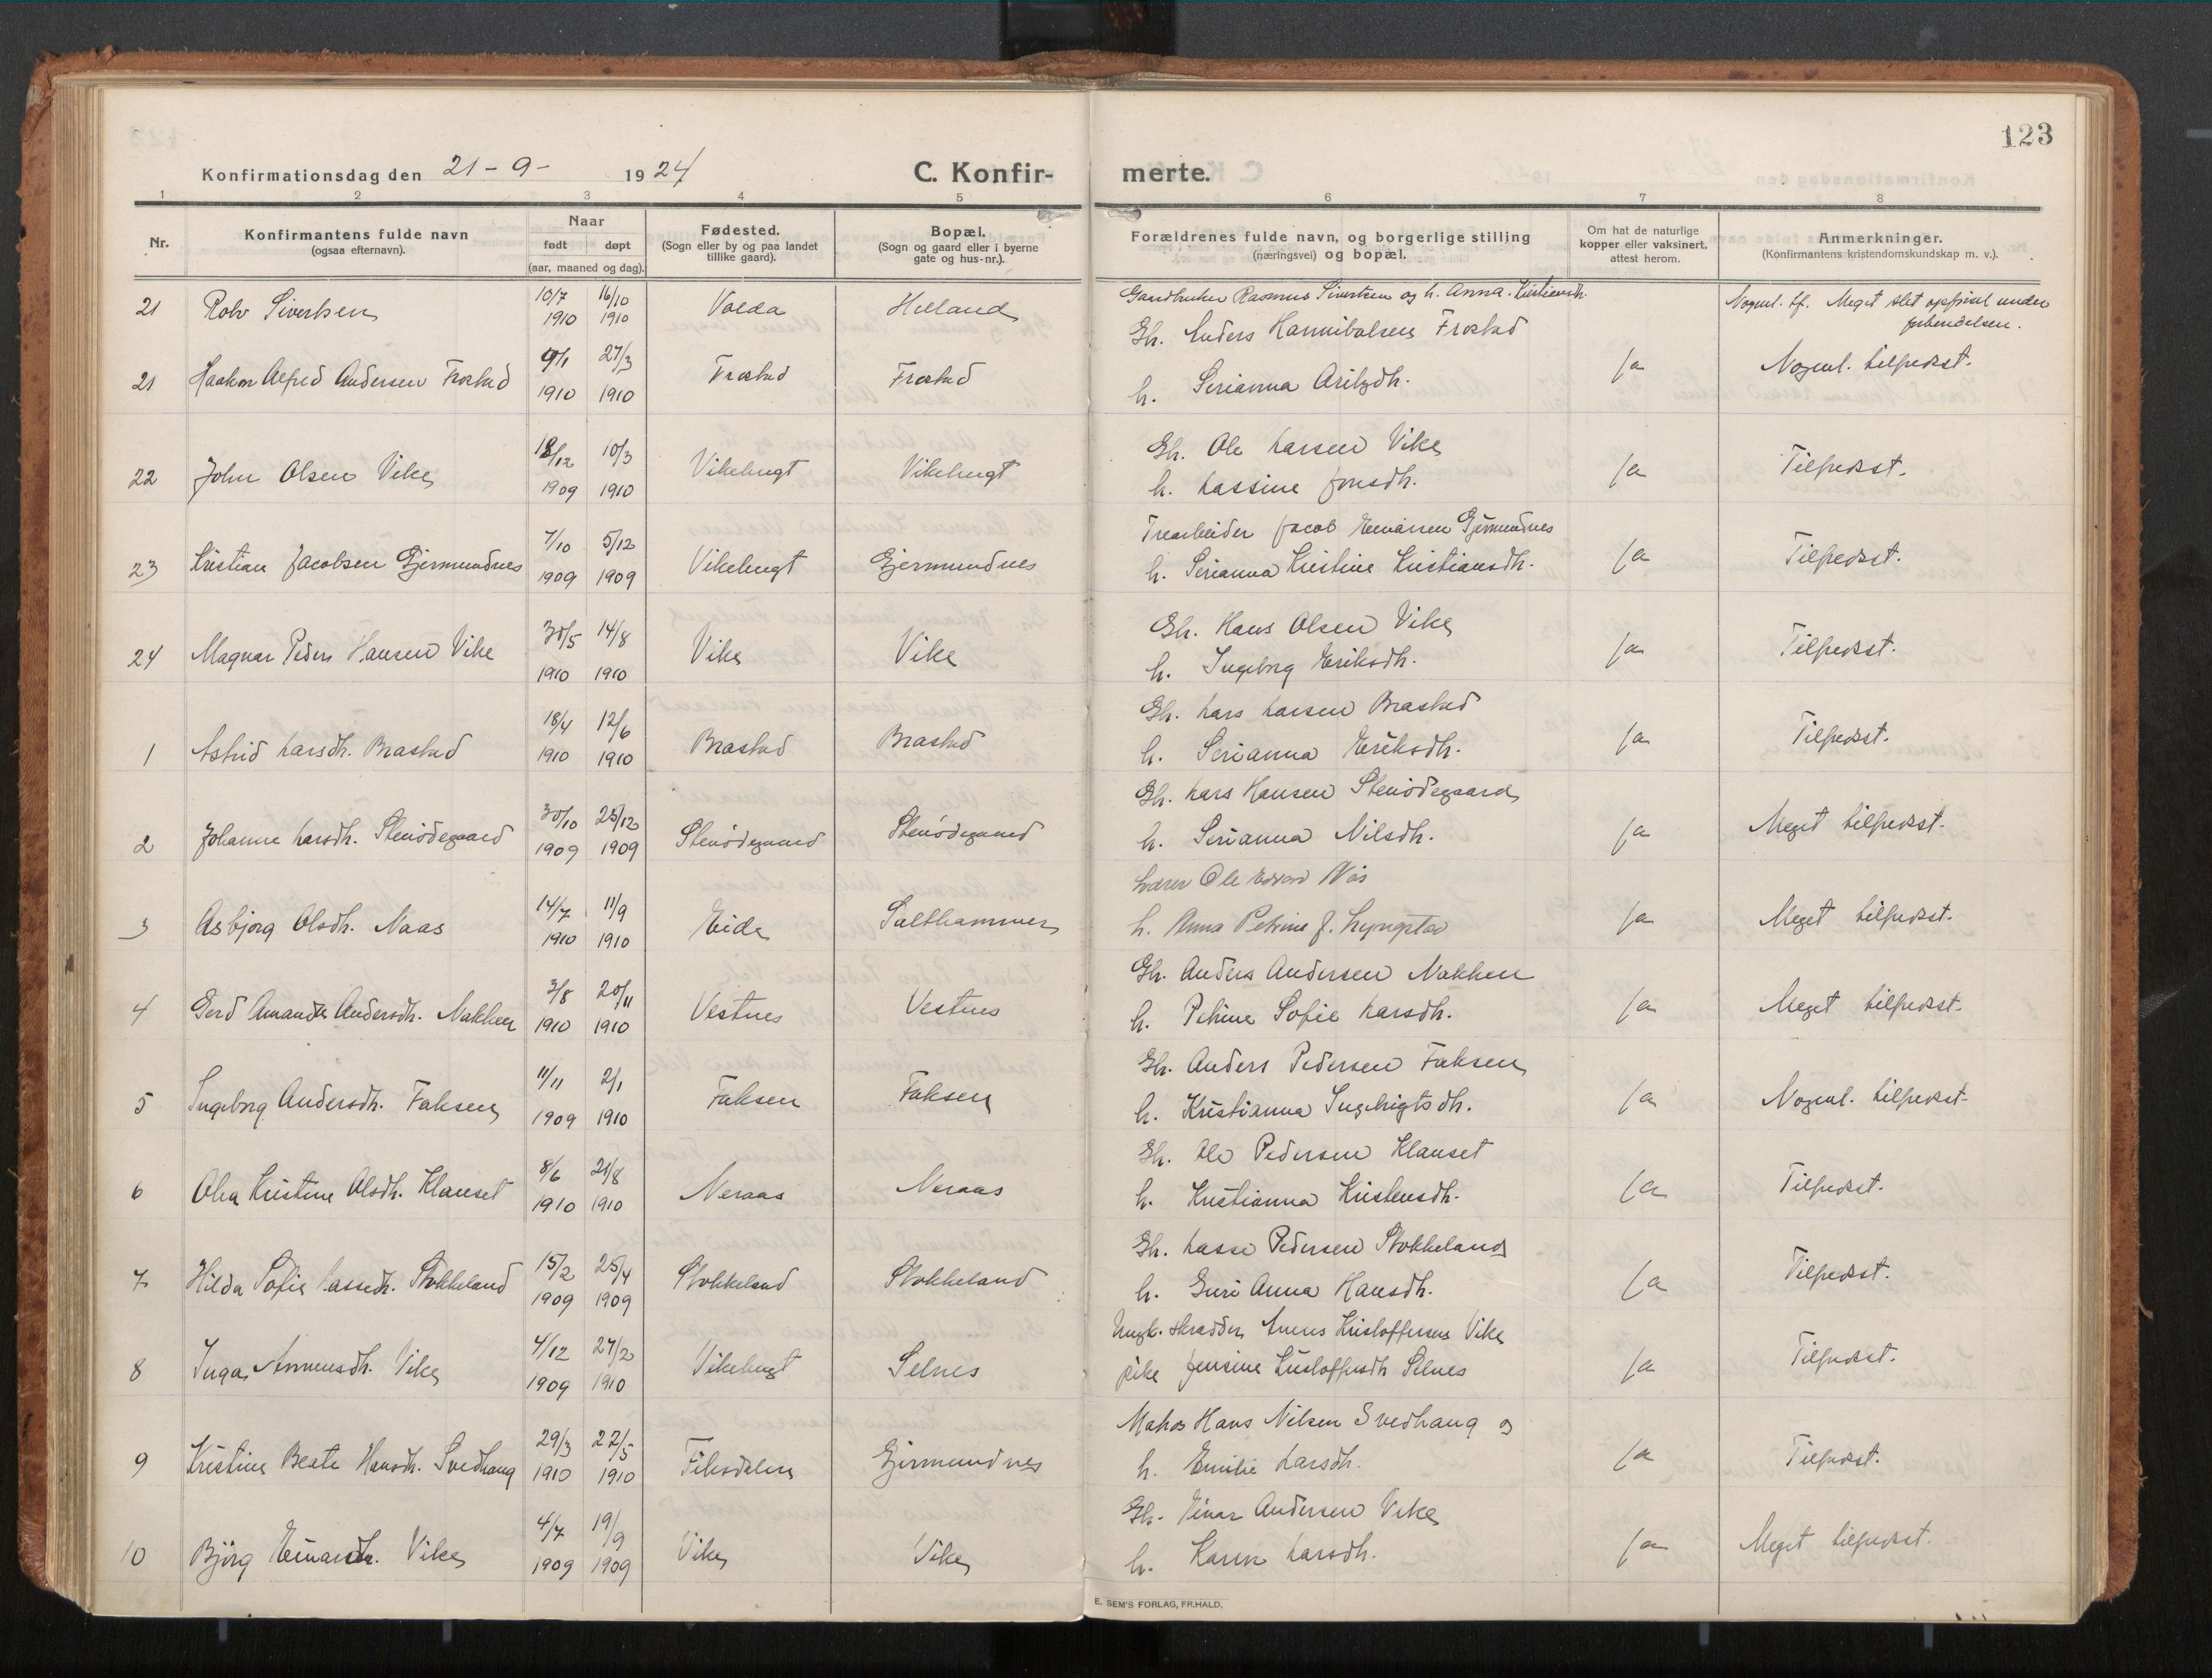 123
Konfirmationsdag den 21-9- 1924
C. Konfir-
merte.
1 2 3 4 5 6 7 8
Nr.
Konfirmantens fulde navn
(ogsaa efternavn).
Naar
født døpt
(aar, maaned og dag).
Fødested.
(Sogn eller by og paa landet
tillike gaard).
Bopæl.
(Sogn og gaard eller i byerne
gate og hus-nr.).
Forældrenes fulde navn, og borgerlige stilling
(næringsvei) og bopæl.
Om hat de naturlige
kopper eller vaksinert,
attest herom.
Anmerkninger.
(Konfirmantens kristendomskundskap m. v.).
21 Rolv Sivertsen 10/7 1910 16/10 1910 Volda Helland
Gaardbruker Rasmus Sivertsen og h. Anna Kristiansdh.
Nogenl. tf. Meget slet opførsel under
forberedelsen.
21 Haakon Alfred Andersen Frostad 9/1 1910 27/3 1910 Frostad Frostad
Gbr. Anders Hannibalsen Frostad
h. Serianna
ja Nogenl. tilfredsst.
22 John Olsen Vike 18/12 1909 10/3 1910 Vikebugt Vikebugt
Gbr. Ole Larsen Vike
h. Lassine Jonsdh.
ja Tilfredsst.
23 Kristian Jacobsen Gjermundnes 7/10 1909 5/12 1909 Vikebugt Gjermundnes
Træarbeider Jacob Einarsen Gjermundnes
h. Serianna Kristine Kristiansdh.
ja Tilfredsst.
24 Magnar Peder Hansen Vike 30/5 1910 14/8 1910 Vike Vike
Gbr. Hans Olsen Vike
h. Ingeborg Eriksdh.
ja Tilfredsst.
1 Astrid Larsdh. Brastad 18/4 1910 12/6 1910 Brastad Brastad
Gbr. Lars Larsen Brastad
h. Serianna Eriksdh.
ja Tilfredsst.
2 Johanne Larsdh. Stenödegaard 30/10 1909 25/12 1909 Stenödegaard Stenödegaard
Gbr. Lars Hansen Stenödegaard
h. Serianna Nilsdh.
ja Meget tilfredsst.
3 Asbjørg Olsdh. Naas 14/7 1910 11/9 1910 Eide Salthammer
Lærer Ole Edvard Nås
h. Anna Petrine f. Lyngstad
ja Meget tilfredsst.
4 Gerd Amanda Andersdh. Nakken 3/8 1910 20/11 1910 Vestnes Vestnes
Gbr. Anders Andersen Nakken
h. Petrine Sofie Larsdh.
ja Meget tilfredsst.
5 Ingeborg Andersdh. Faksen 11/11 1909 2/1 1910 Faksen Faksen
Gbr. Anders Pedersen Faksen
h. Kristianna Ingebrigtsdh.
ja Nogenl. tilfredsst.
6 Olea Kristine Olsdh. Klauset 8/6 1910 21/8 1910 Neraas Neraas
Gbr. Ole Pedersen Klauset
h. Kristianna Kristensdh.
ja Tilfredsst.
7 Hilda Sofie Lassedh. Stokkeland 15/2 1909 25/4 1909 Stokkeland Stokkeland
Gbr. Lasse Pedersen Stokkeland
h. Guri Anna Hansdh.
ja Tilfredsst.
8 Inga Vike 4/12 1909 27/2 1910 Vikebugt Selnes
Ungk. skrædder Kristoffersen Vike
pike Jensine Kristoffersdh Selnes
ja Tilfredsst.
9 Kristine Beate Hansdh. Svedhaug 29/3 1910 22/5 1910 Fiksdalen Gjermundnes
Hans Nilsen Svedhaug og
h. Emilie Larsdh.
ja Tilfredsst.
10 Björg Einarsdh. Vike 4/7 1909 19/9 1909 Vike Vike
Gbr. Einar Andersen Vike
h. Karen Larsdh.
ja Meget tilfredsst.
E. SEM'S FORLAG, FR.HALD.